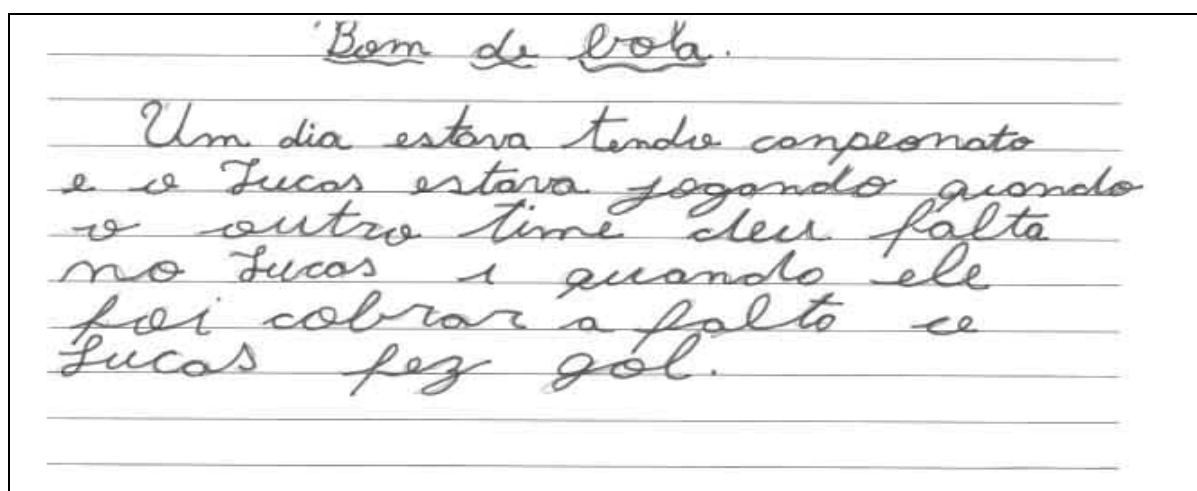 Bom de bola.
Um dia estava tendo conpeonato
e o Lucas estava jogando quando
o outro time deu falta
no Lucas i quando ele
foi cobrar a falta o
Lucas fez gol.